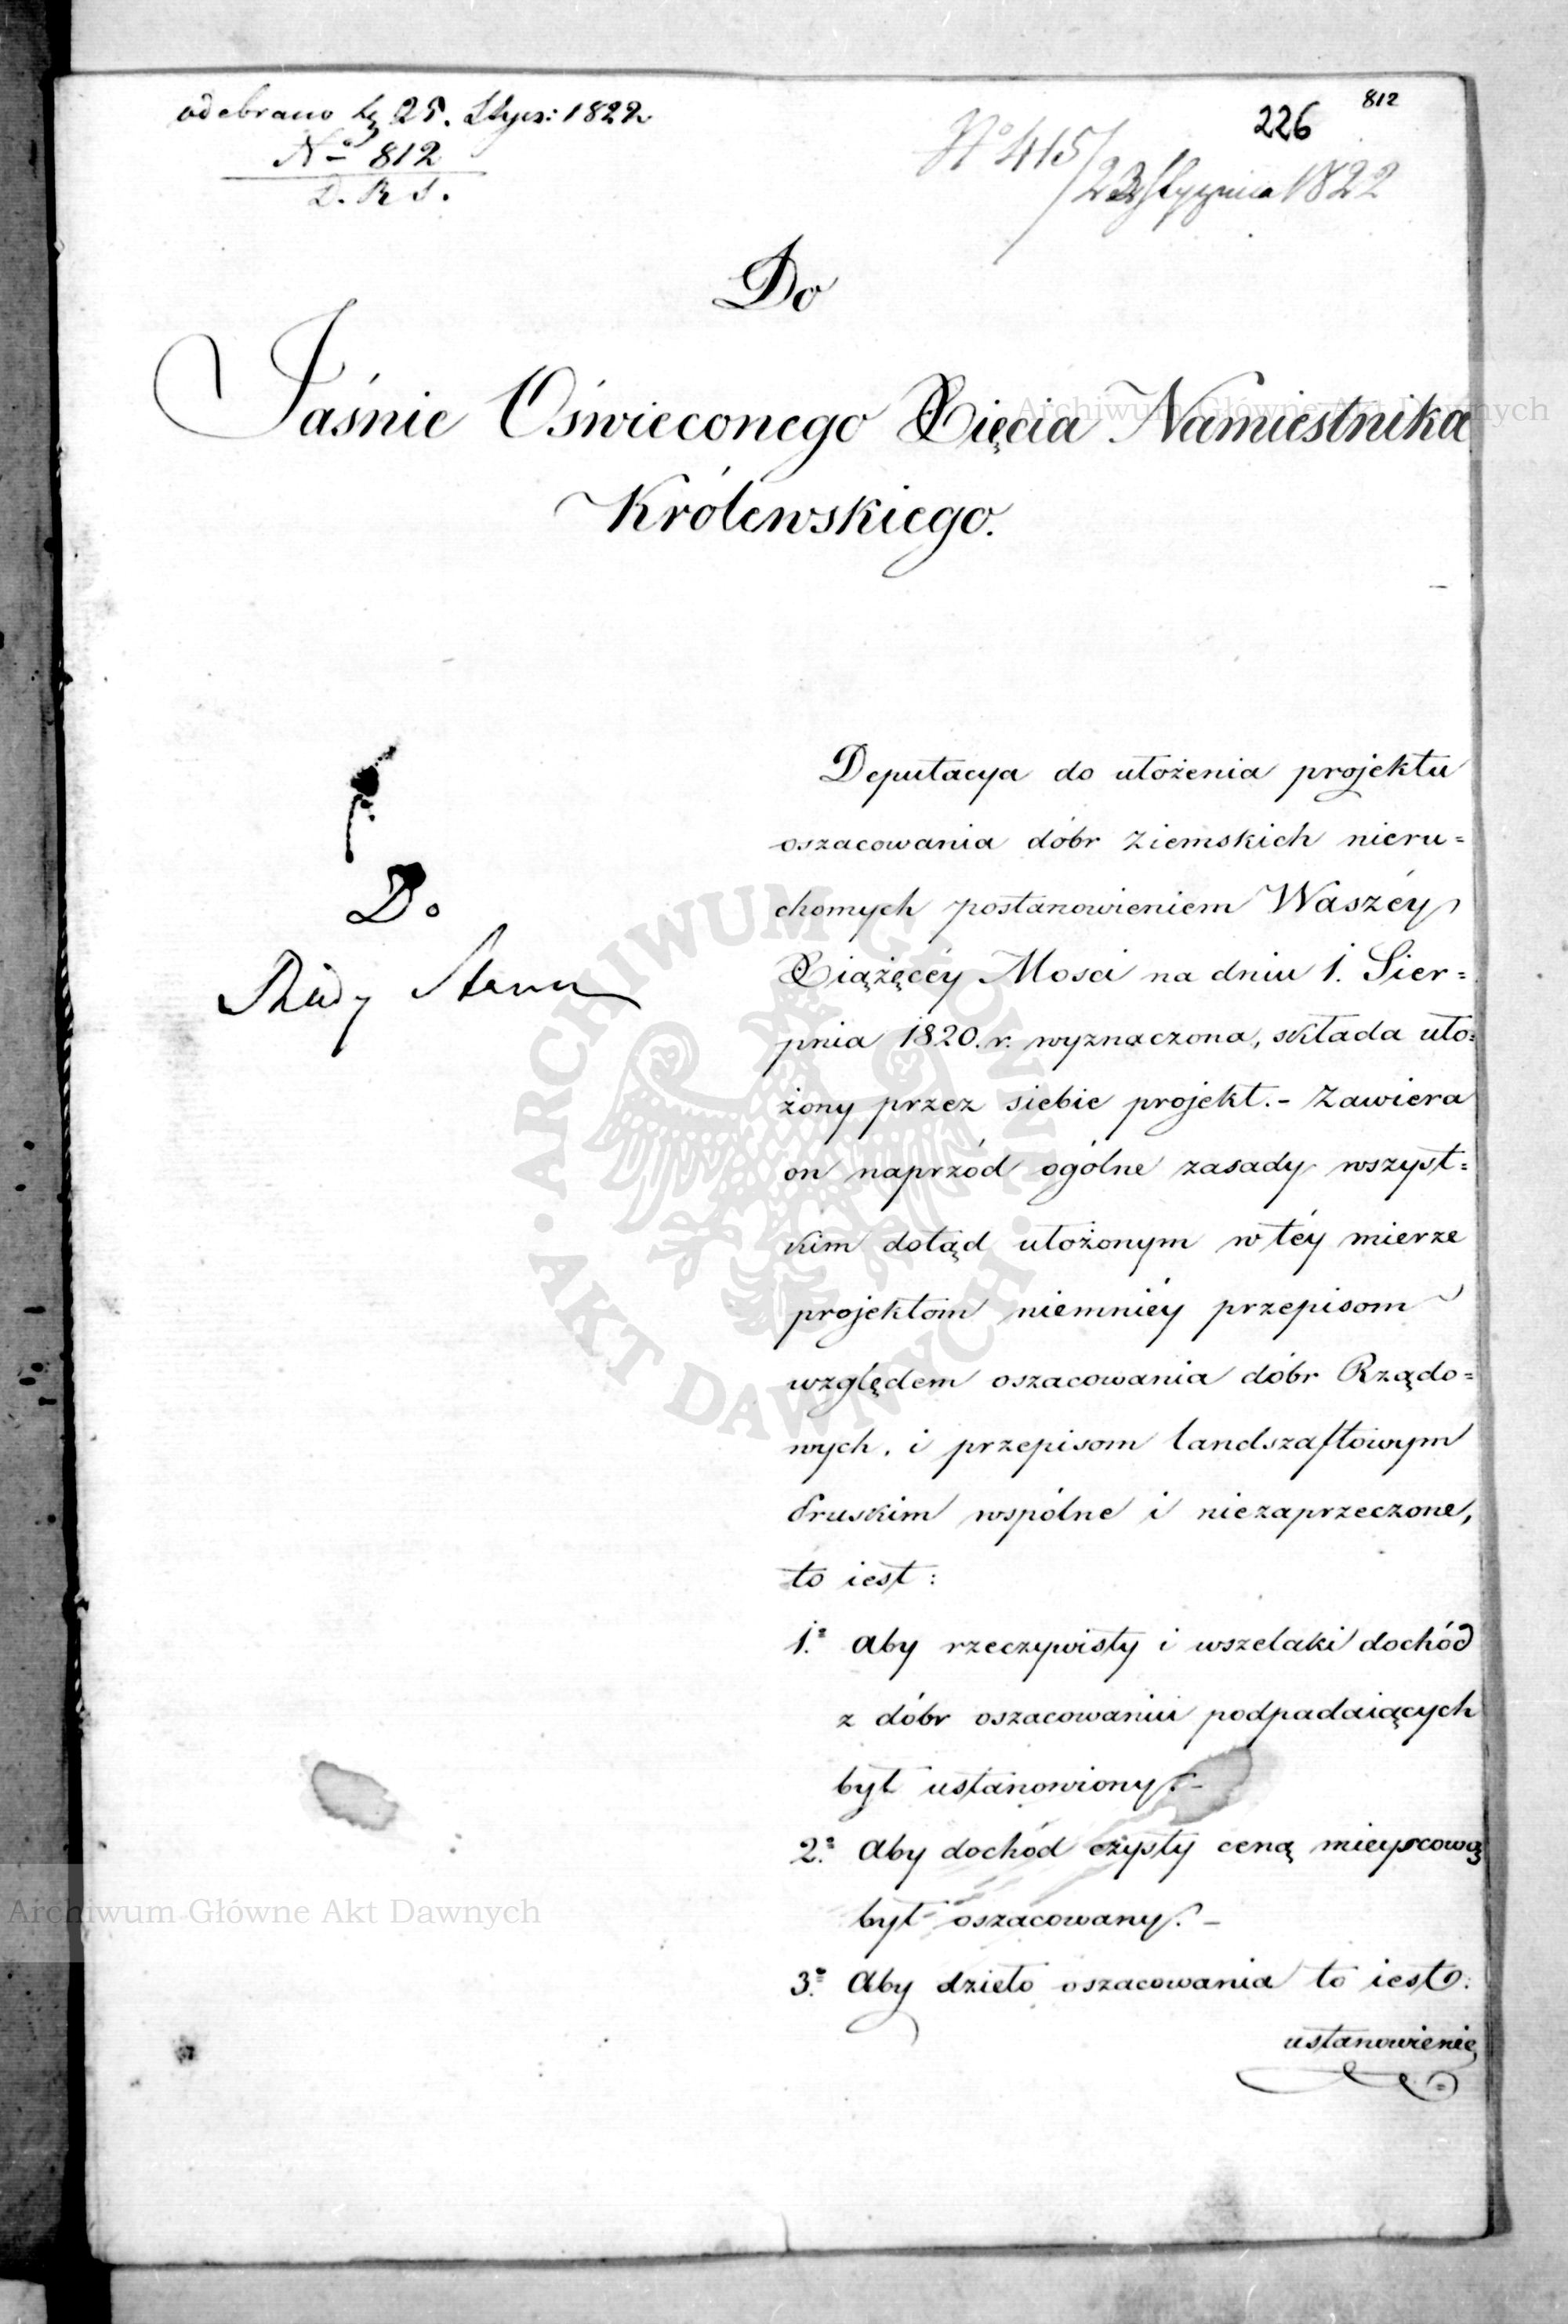 odebrano d. 25. Stycz: 1822.
No 812
D. R. S.
812
226
No 415/
23 Stycznia 1822
Do
Jaśnie Oświeconego Xięcia Namiestnika
Królewskiego.
Do
Rady Stanu
Deputacya do ułożenia projektu
oszacowania dóbr ziemskich nieru=
chomych postanowieniem Waszéy
Xiążęcéy Mosci na dniu 1. Sier=
pnia 1820. r. wyznaczona, składa uło=
żony przez siebie projekt. - Zawiera
on naprzód ogólne zasady wszyst=
kim dotąd ułożonym w téy mierze
projektom niemniéy przepisom
względem oszacowania dóbr Rządo=
wych, i przepisom landszaftowym
Pruskim wspólne i niezaprzeczone,
to iest:
1.o Aby rzeczywisty i wszelaki dochód
z dóbr oszacowaniu podpadaiących
był ustanowiony. -
2.o Aby dochód czysty ceną mieyscową
był oszacowany. -
3.o Aby dzieło oszacowania to iest:
ustanowienie
Archiwum Główne Akt Dawnych
ARCHIWUM GŁÓWNE · AKT DAWNYCH ·
Archiwum Główne Akt Dawnych